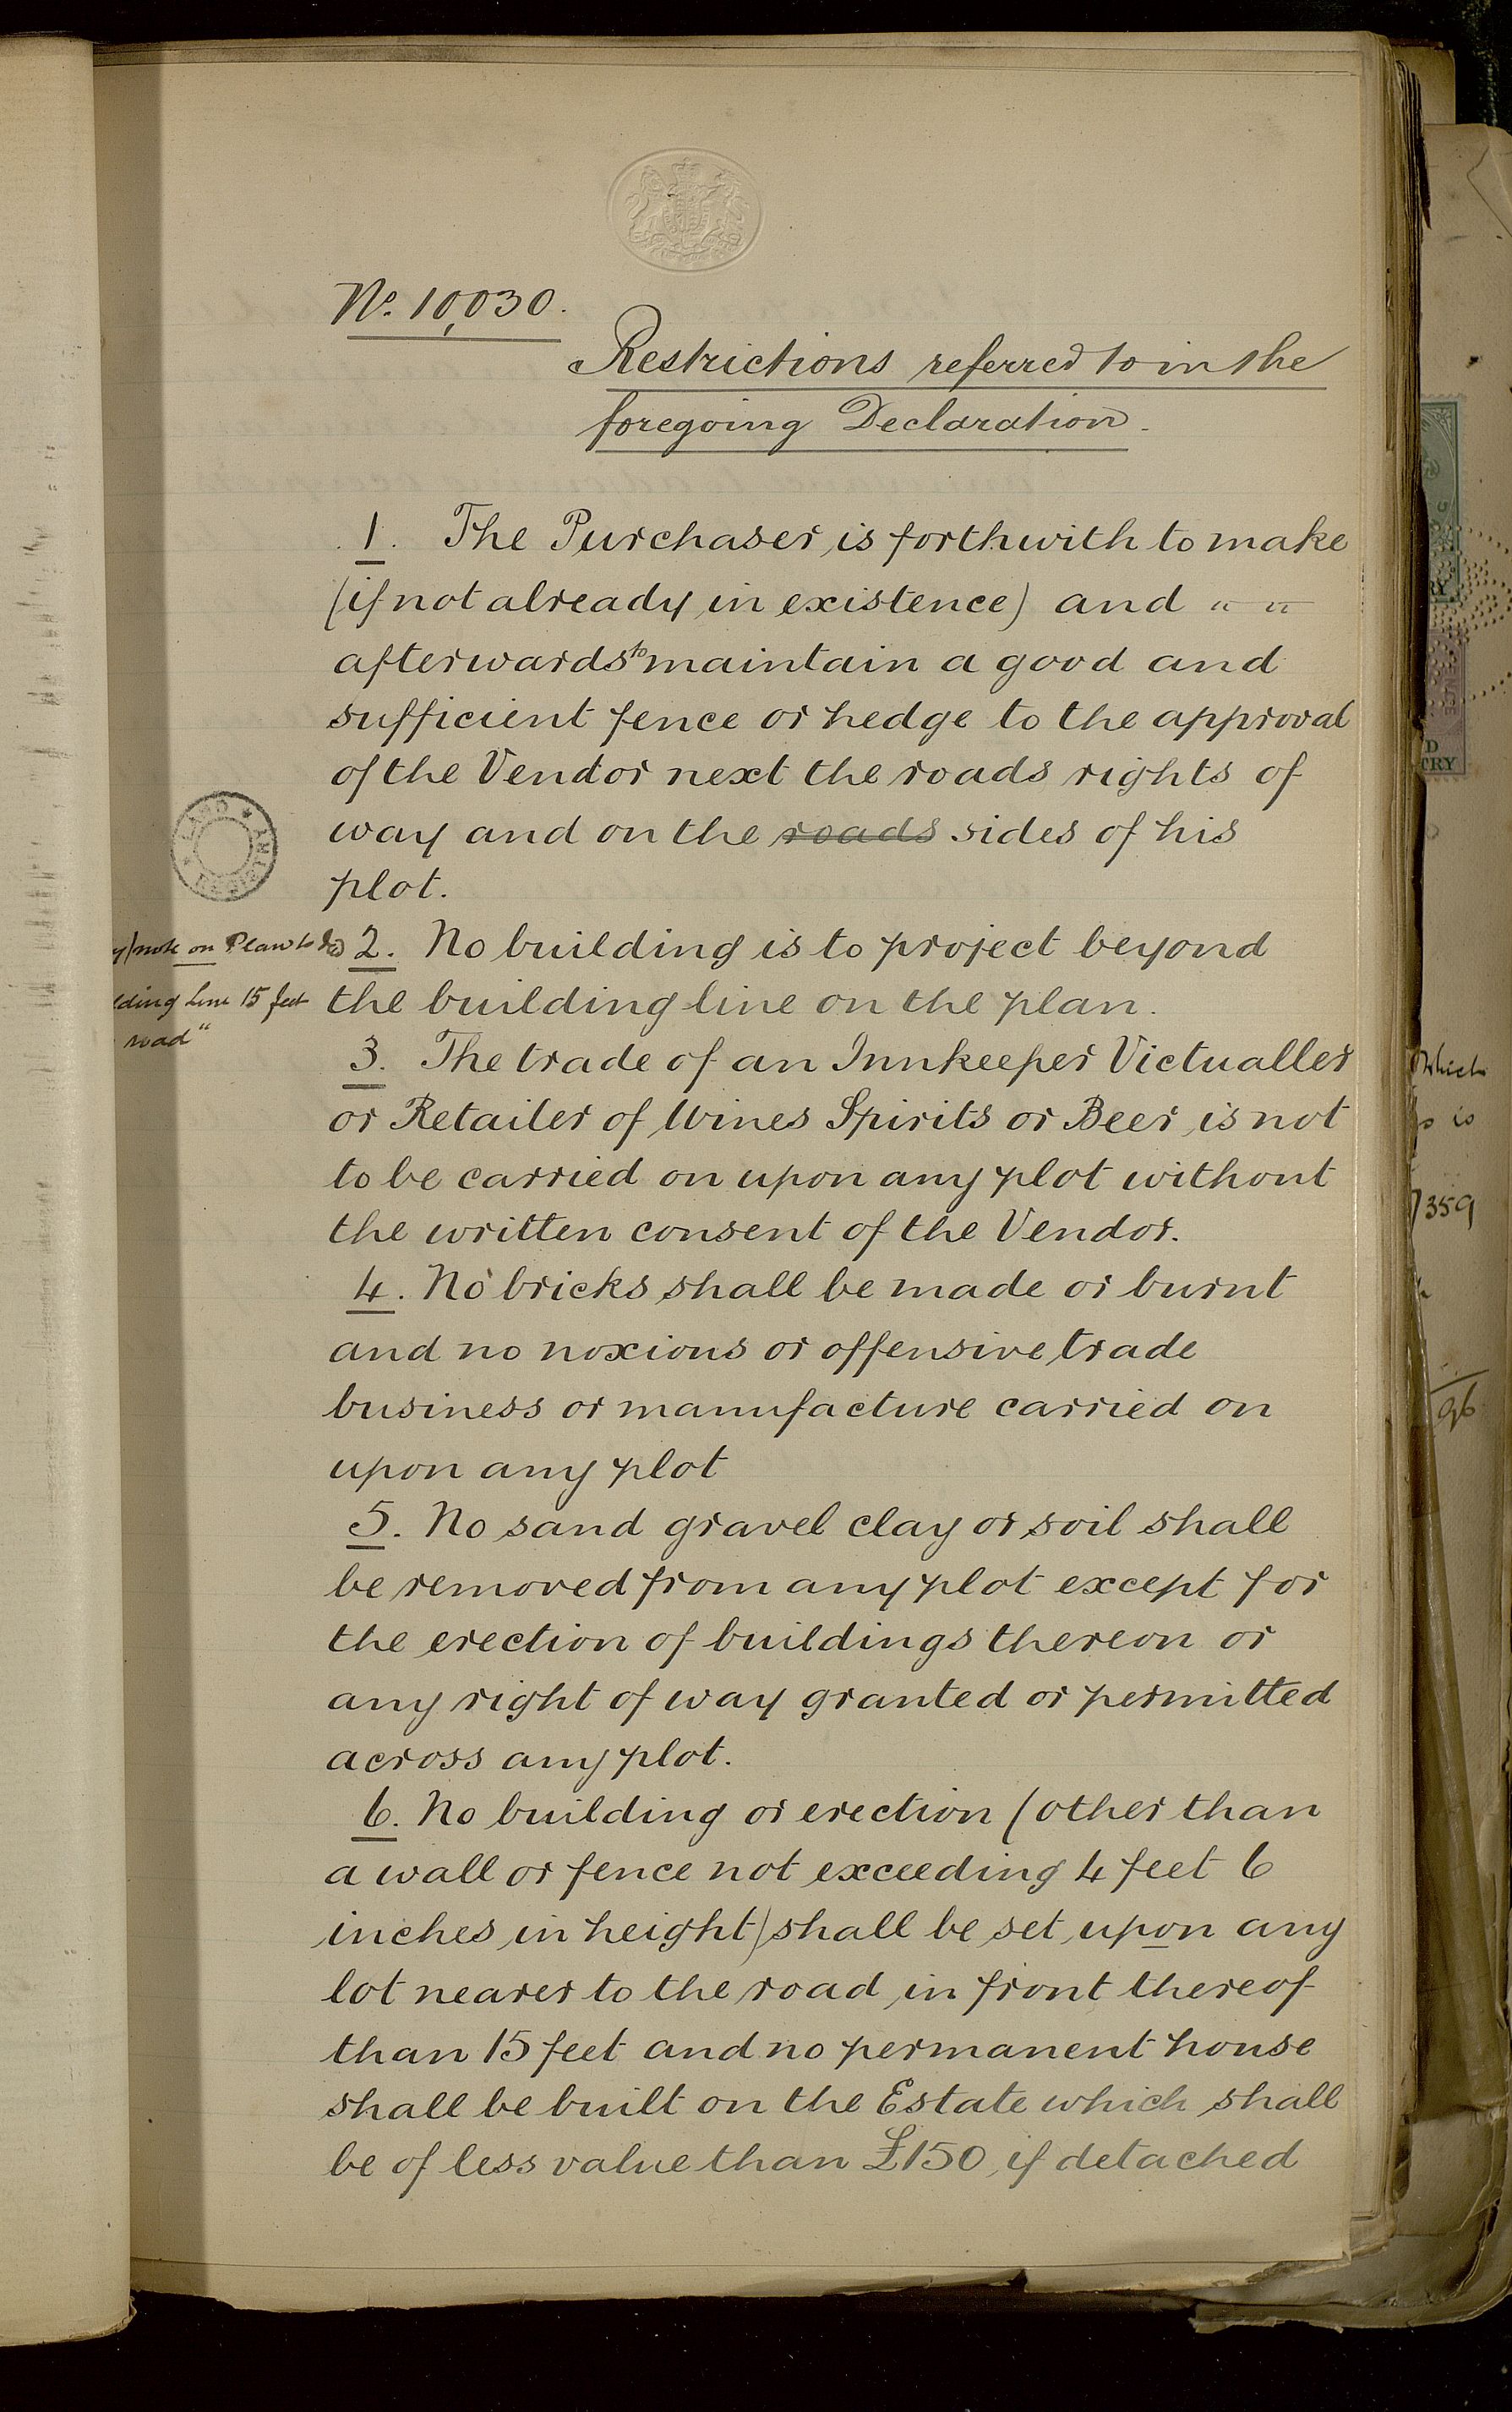 No. 10,030.
Restrictions referred to in the
foregoing Declaration.
1. The Purchaser is forthwith to make
(if not already in existence) and " "
afterwards to maintain a good and
sufficient fence or hedge to the approval
of the Vendor next the roads rights of
way and on the roads sides of his
plot.
note on Plan to
2. No building is to project beyond
lding Line 15 feet
the building line on the plan.
road"
3. The trade of an Innkeeper Victualler
or Retailer of Wines Spirits or Beer is not
to be carried on upon any plot without
the written consent of the Vendor.
4. No bricks shall be made or burnt
and no noxious or offensive trade
business or manufacture carried on
upon any plot
5. No sand gravel clay or soil shall
be removed from any plot except for
the erection of buildings thereon or
any right of way granted or permitted
across any plot.
6. No building or erection (other than
a wall or fence not exceeding 4 feet 6
inches in height) shall be set upon any
lot nearer to the road in front thereof
than 15 feet and no permanent house
shall be built on the Estate which shall
be of less value than £150 if detached
LAND REGISTRY
which
is
359
96